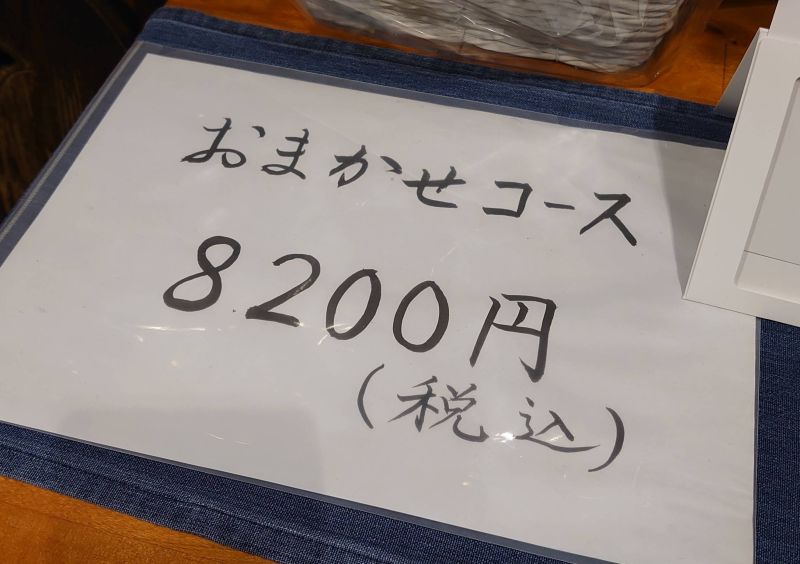 おまかせコース
8200円
(税込)